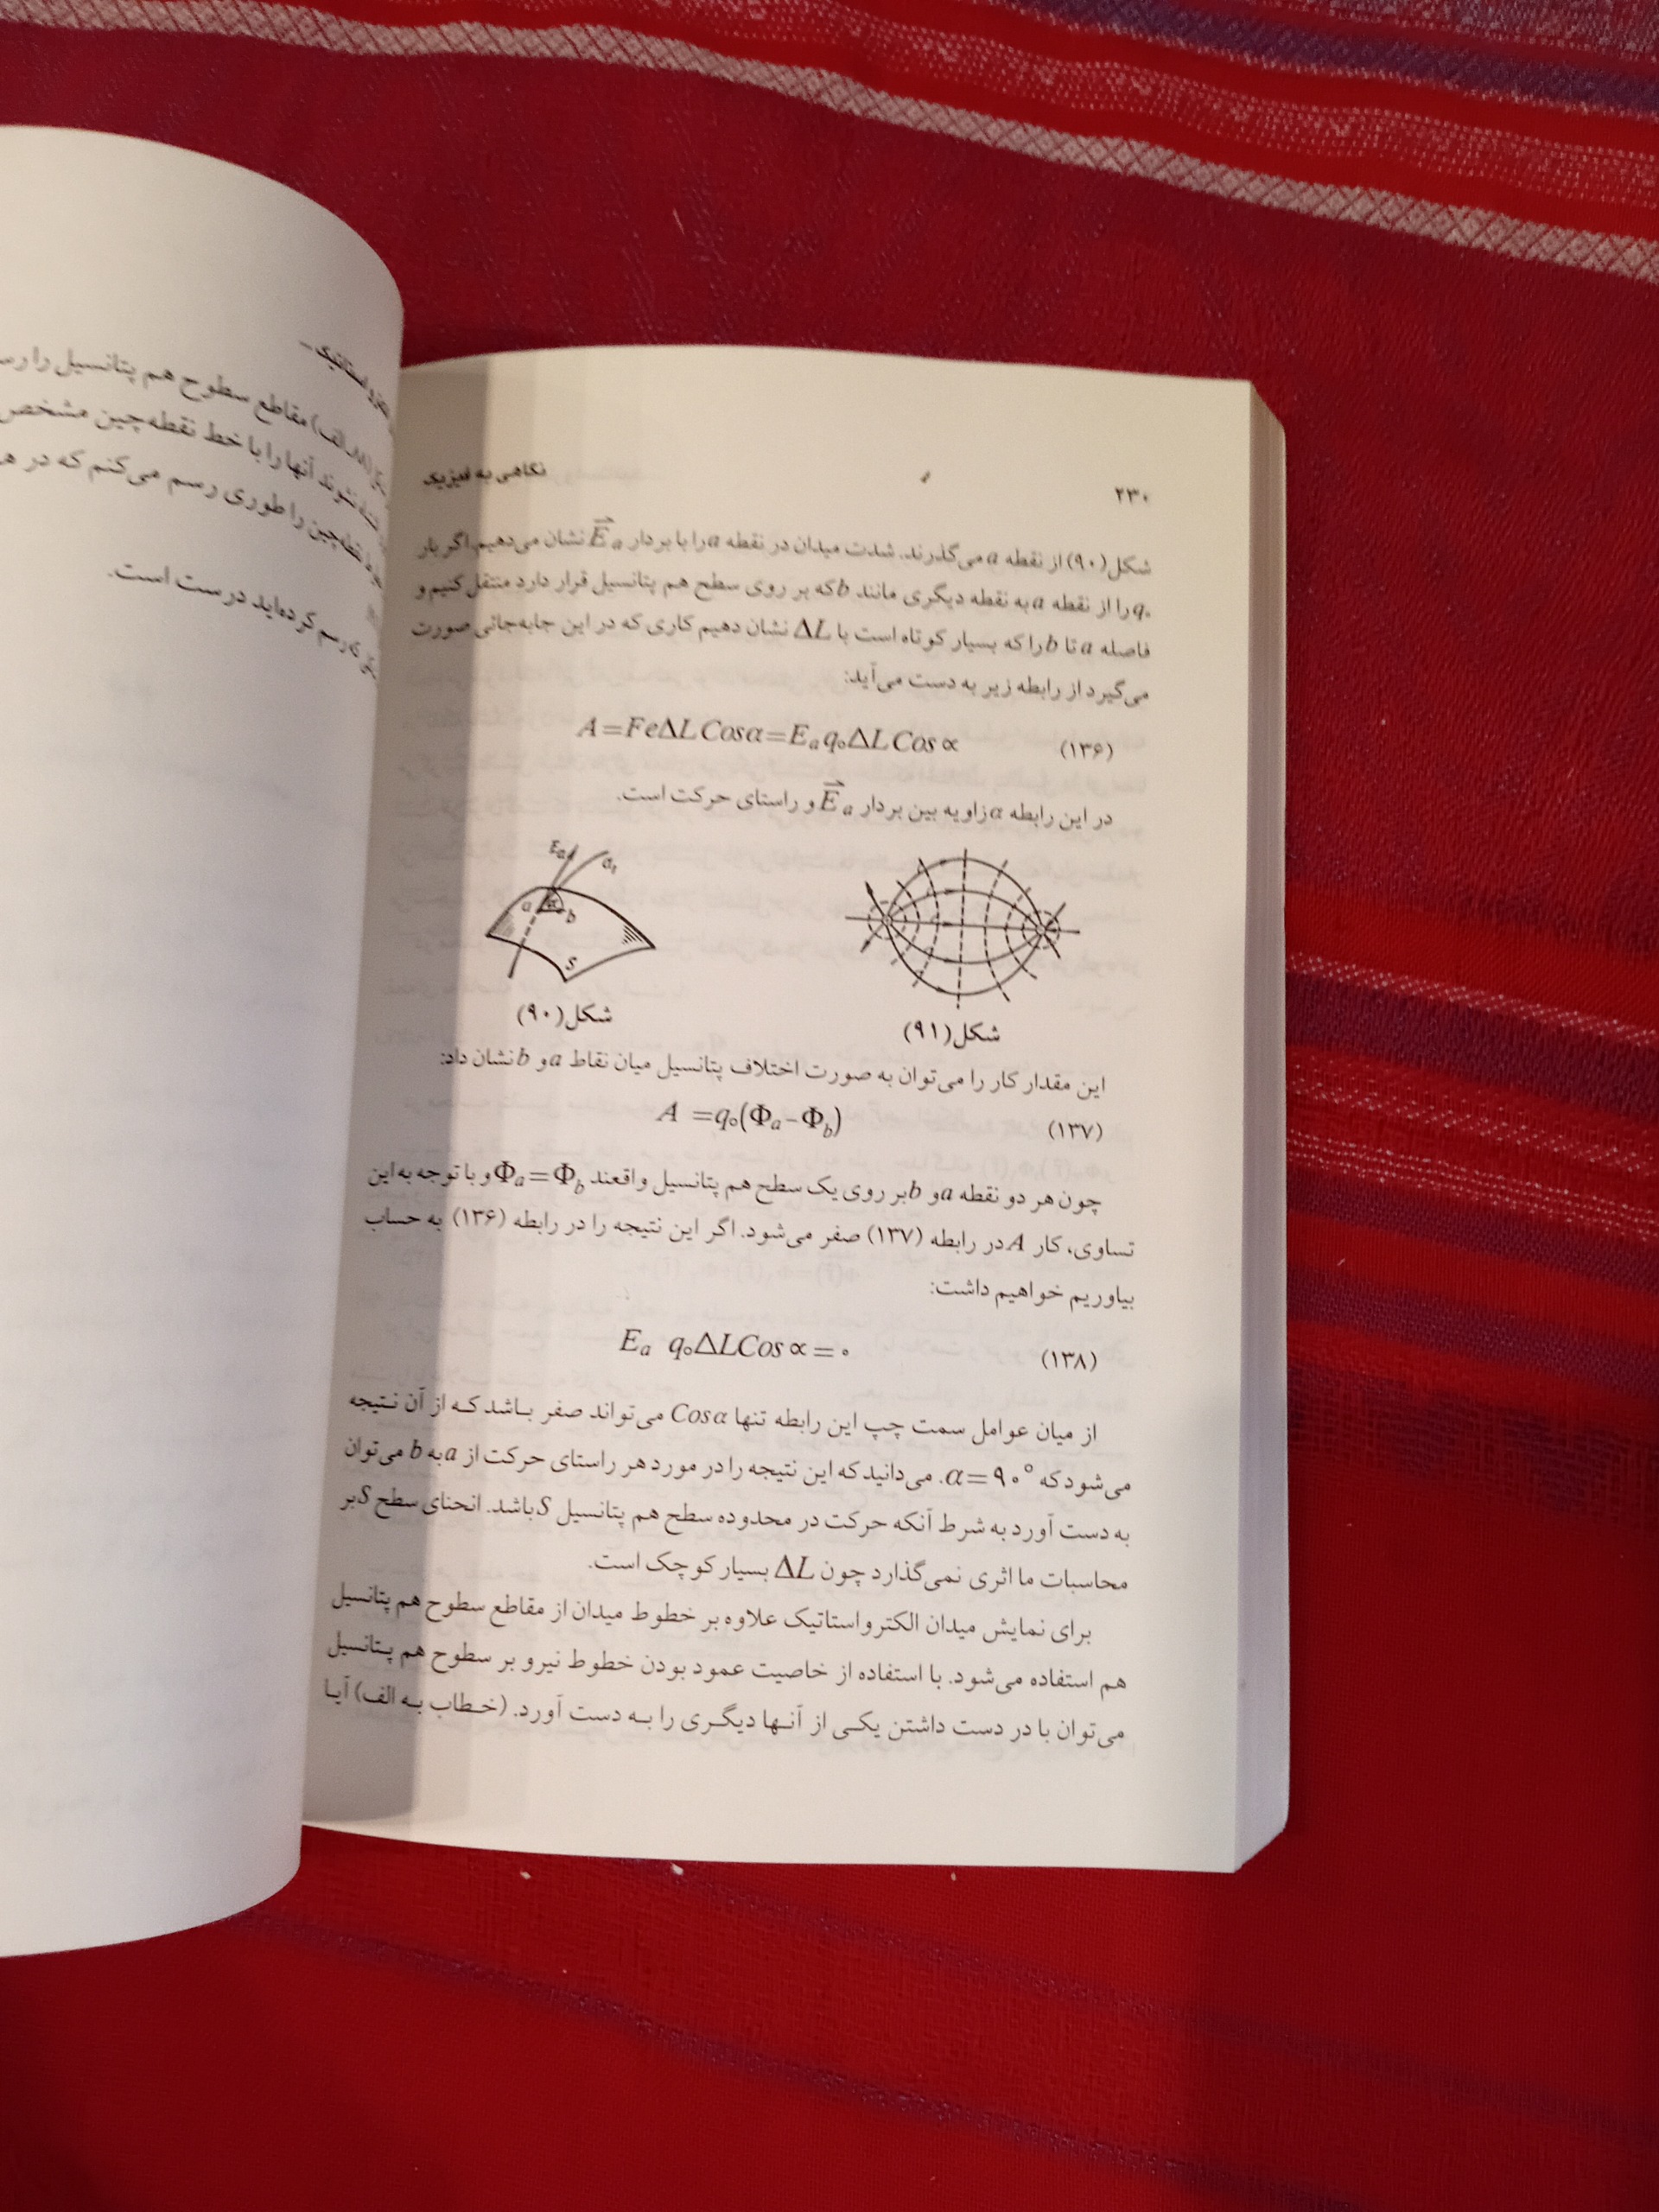 ۲۳۰
نگاهی به فیزیک
شکل(۹۰) از نقطه a می‌گذرند. شدت میدان در نقطه a را با بردار E⃗a نشان می‌دهیم. اگر بار
q۰ را از نقطه a به نقطه دیگری مانند b که بر روی سطح هم پتانسیل قرار دارد منتقل کنیم و
فاصله a تا b را که بسیار کوتاه است با ΔL نشان دهیم کاری که در این جابه‌جائی صورت
می‌گیرد از رابطه زیر به دست می‌آید:
(۱۳۶) A=FeΔL Cosα=Ea q۰ΔL Cos∝
در این رابطه α زاویه بین بردار E⃗a و راستای حرکت است.
Ea a₁ a α b S
شکل(۹۱)
شکل(۹۰)
این مقدار کار را می‌توان به صورت اختلاف پتانسیل میان نقاط a و b نشان داد:
(۱۳۷) A =q۰(Φa−Φb)
چون هر دو نقطه a و b بر روی یک سطح هم پتانسیل واقعند Φa=Φb و با توجه به این
تساوی، کار A در رابطه (۱۳۷) صفر می‌شود. اگر این نتیجه را در رابطه (۱۳۶) به حساب
بیاوریم خواهیم داشت:
(۱۳۸) Ea q۰ΔLCos∝=۰
از میان عوامل سمت چپ این رابطه تنها Cosα می‌تواند صفر باشد که از آن نتیجه
می‌شود که α=۹۰°. می‌دانید که این نتیجه را در مورد هر راستای حرکت از a به b می‌توان
به دست آورد به شرط آنکه حرکت در محدوده سطح هم پتانسیل S باشد. انحنای سطح S بر
محاسبات ما اثری نمی‌گذارد چون ΔL بسیار کوچک است.
برای نمایش میدان الکترواستاتیک علاوه بر خطوط میدان از مقاطع سطوح هم پتانسیل
هم استفاده می‌شود. با استفاده از خاصیت عمود بودن خطوط نیرو بر سطوح هم پتانسیل
می‌توان با در دست داشتن یکی از آنها دیگری را به دست آورد. (خطاب به الف) آیا
الکترواستاتیک –
الف) مقاطع سطوح هم پتانسیل را
نشوند آنها را با خط نقطه‌چین مشخص
نقطه‌چین را طوری رسم می‌کنم که در
که رسم کرده‌اید درست است.